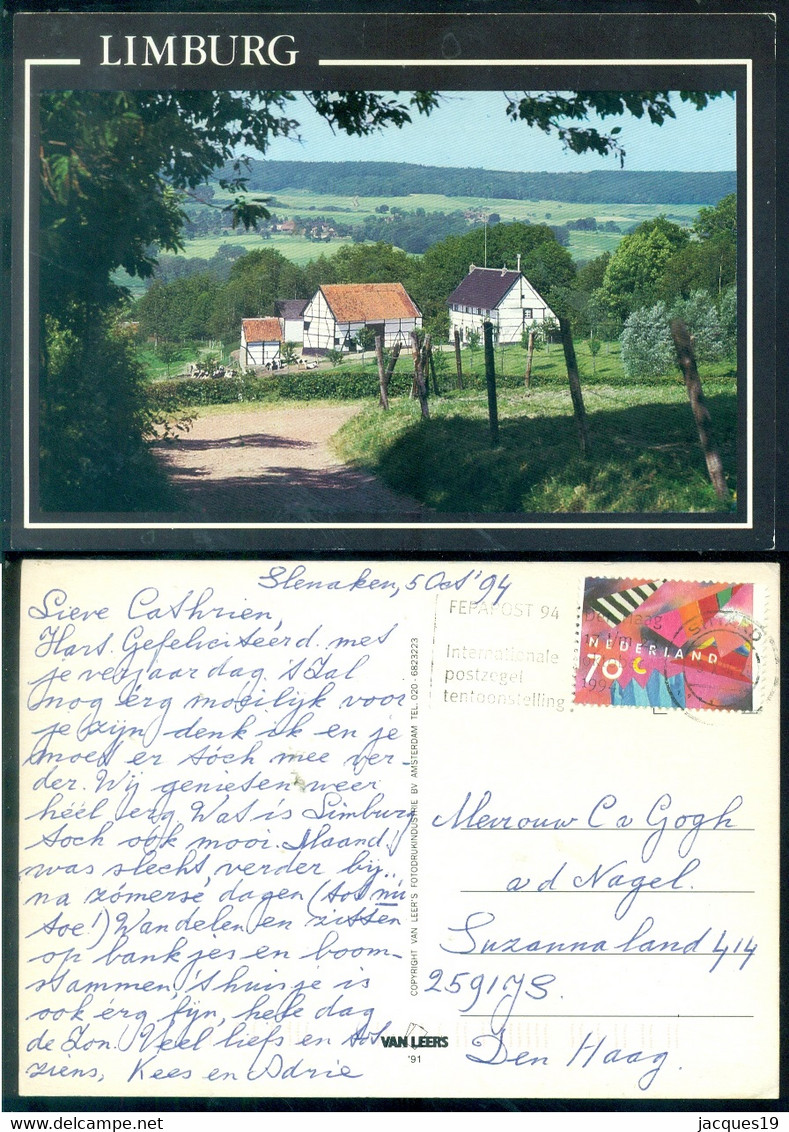 LIMBURG
Slenaken, 5 Oct '94
Lieve Cathrien,
Hart. Gefeliciteérd. met
je verjaar dag. 't Zal
nog érg moeilijk voor
je zijn denk ik en je
moet er tóch mee ver-
der. Wij genieten weer
héél erg. Wat is Limburg
toch ook mooi. Maand.
was slecht, verder bij-
na zómerse dagen (tot nú
toe!) Wandelen en zitten
op bankjes en boom-
stammen, 't huisje is
ook érg fijn, hele dag
de Zon! Veel liefs en tot
ziens, Kees en Adrie
COPYRIGHT VAN LEER'S FOTODRUKINDUSTRIE BV AMSTERDAM TEL. 020-6823223
VAN LEERS
'91
FEPAPOST 94
Internationale
postzegel
tentoonstelling
Den Haag
1994
NEDERLAND
70 c
Mevrouw C v Gogh
v d Nagel.
Suzannaland 414
2591 JS.
Den Haag.
jacques19